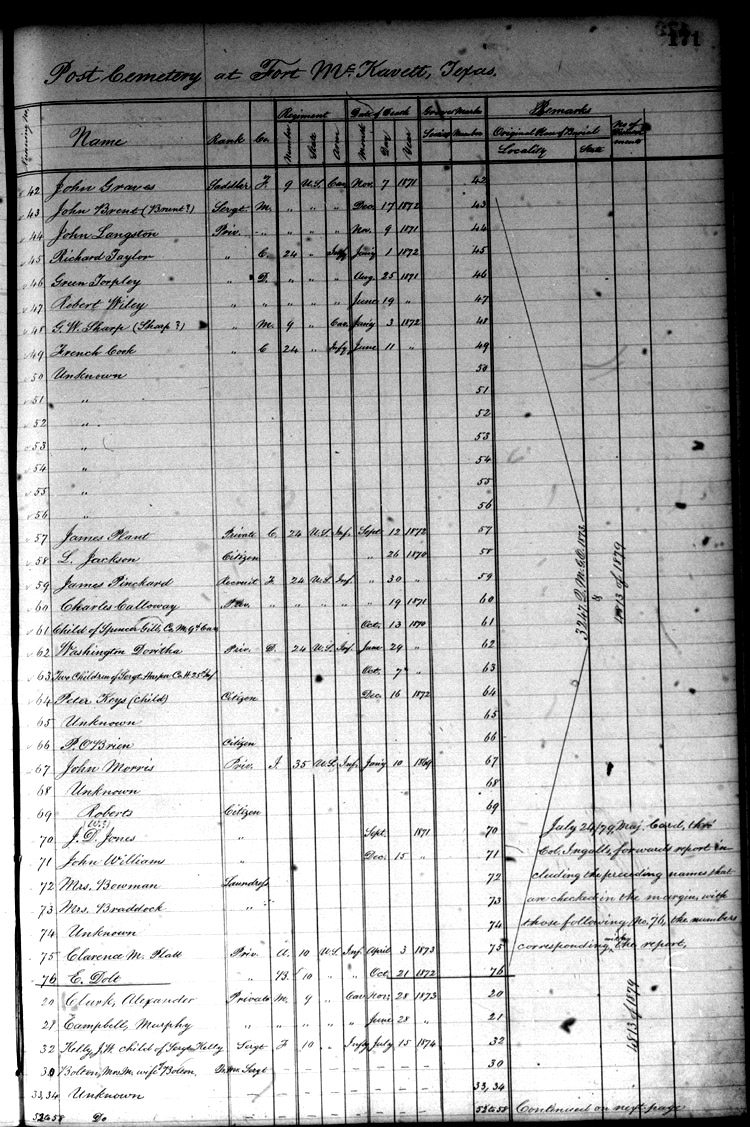 171
Post Cemetery at Fort McKavett, Texas.
Regiment Date of Death Grave Marks Remarks
Name Rank Co. Number State Arm Month Day Year Number Original Place of Burial No of
Locality State
42 John Graves Saddler F. 9 U.S. Cav. Nov. 7 1871 42
43 John Brent (Brunt?) Sergt. M. " " " Dec. 17 1872 43
44 John Langston Priv. " " " Nov. 9 1871 44
45 Richard Taylor " C. 24 " Infy Jan'y 1 1872 45
46 Green Torpley " D. " " " Aug. 25 1871 46
47 Robert Wiley " " " " " June 19 " 47
48 G. W. Sharp (Sharp?) " M. 9 " Cav. Jan'y 3 1872 48
49 French Cook " C 24 " Infy. June 11 " 49
50 Unknown 50
51 " 51
52 " 52
53 " 53
54 " 54
55 " 55
56 " 56
57 James Plant Private C. 24 U.S. Inf. Sept. 12 1872 57
58 L. Jackson Citizen " 26 1870 58
59 James Pinchard Recruit F. 24 U.S. Inf. " 30 " 59
60 Charles Calloway Priv. " " " " " 19 1871 60
61 Child of Spencer Co. M. 9th Cav. Oct. 13 1870 61
62 Washington Doritha Priv. D. 24 U.S. Inf. June 29 " 62
63 Two Children of Sergt. Harper Co. H. 25th Inf Oct. 7 " 63
64 Peter Keys (child) Citizen Dec. 16 1872 64
65 Unknown 65
66 P. O'Brien Citizen 66
67 John Morris Priv. I. 35 U.S. Inf. Jan'y 10 1869 67
68 Unknown 68
69 Roberts Citizen 69
(W?)
70 J. D. Jones " Sept. 1871 70
71 John Williams " Dec. 15 " 71
72 Mrs. Bowman Laundress 72
73 Mrs. Braddock " 73
74 Unknown 74
75 Clarence M. Platt Priv. A. 10 U.S. Inf. April 3 1873 75
76 E. Dolt " B. 10 " Oct. 21 1872 76
20 Clark, Alexander Private M. 9 " Cav. Nov. 28 1873 20
21 Campbell, Murphy " " " " " June 28 " 21
32 Kelly, J. W. child of Sergt. Kelly Sergt F. 10 " Infy July 15 1874 32
30 Bolton, Mrs. M. wife Bolton, Sergt 30
33,34 Unknown 33,34
53 to 58 Do 53 to 58
3247. Q.M.G.O. 1873
&
4813 of 1879
July 24/79, Maj. Card, thro'
Col. Ingalls, forwards report in-
cluding the preceding names that
are checked in the margin, with
those following No. 76, the numbers
corresponding with the report.
4813 of 1879
Continued on next page